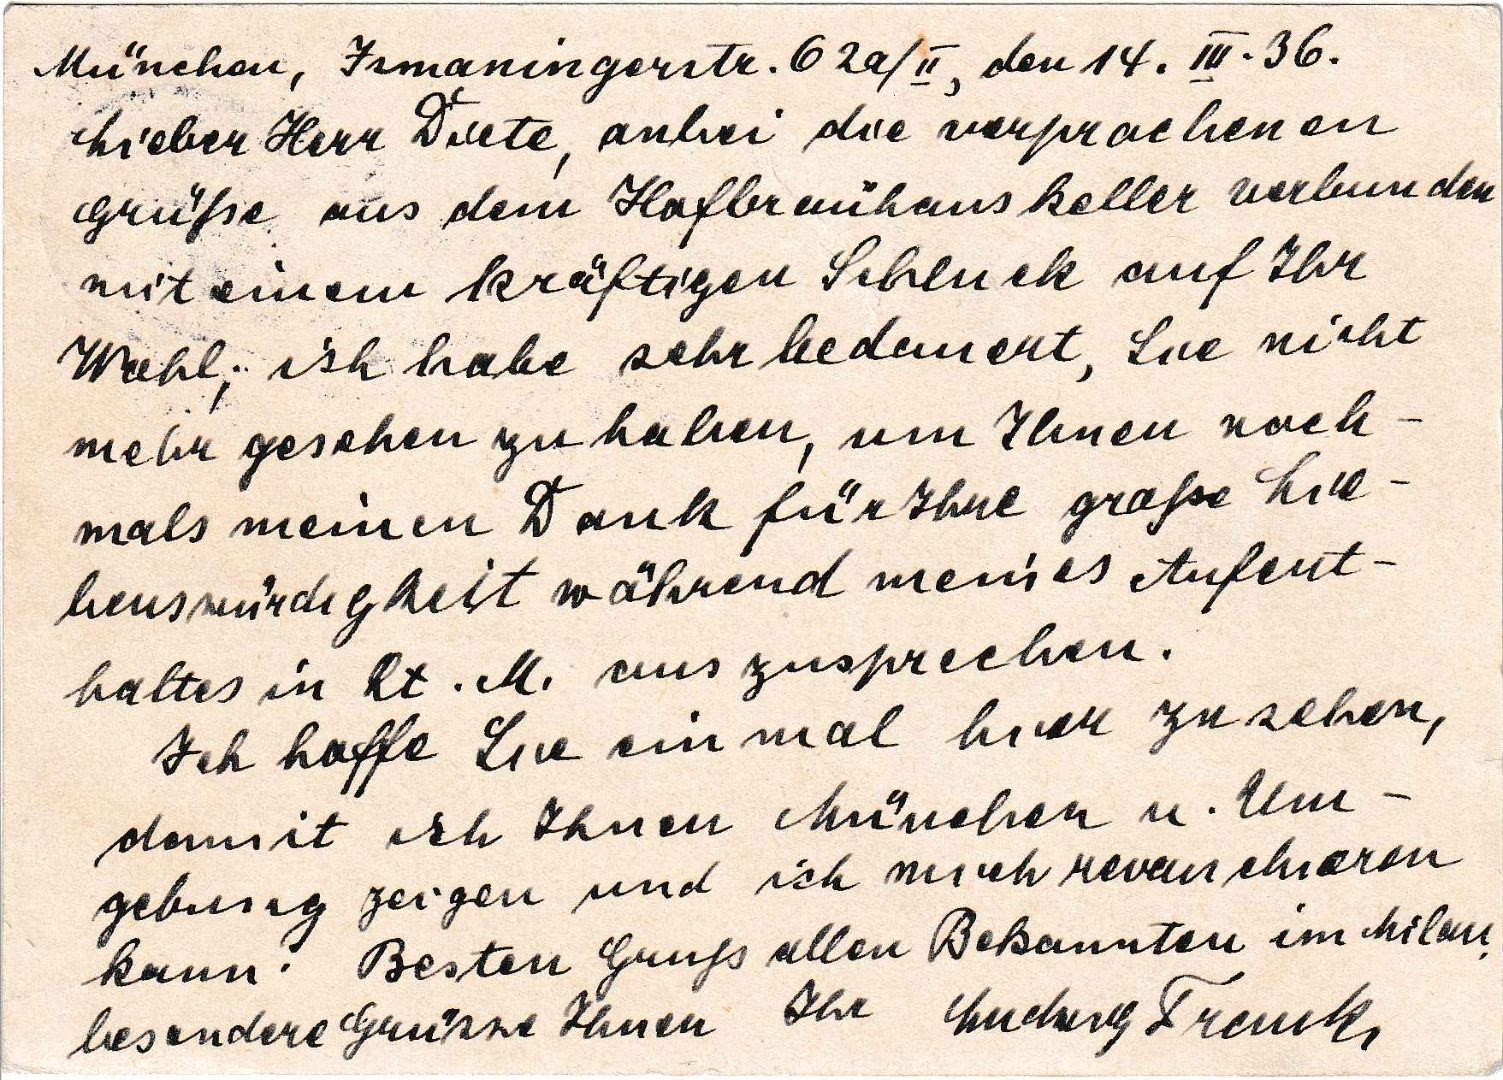 München, Ismaningerstr. 62a/II, den 14. III. 36.
Lieber Herr Diete, anbei die versprochenen
Grüße aus dem Hofbräuhauskeller verbunden
mit einem kräftigen Schluck auf Ihr
Wohl; ich habe sehr bedauert, Sie nicht
mehr gesehen zu haben, um Ihnen noch-
mals meinen Dank für Ihre große Lie-
benswürdigkeit während meines Aufent-
haltes in Rt. M. auszusprechen.
Ich hoffe Sie einmal hier zu sehen,
damit ich Ihnen München u. Um-
gebung zeigen und ich mich revanchieren
kann. Besten Gruß allen Bekannten im Milan.
besondere Grüsse Ihnen Ihr Ludwig Franck,